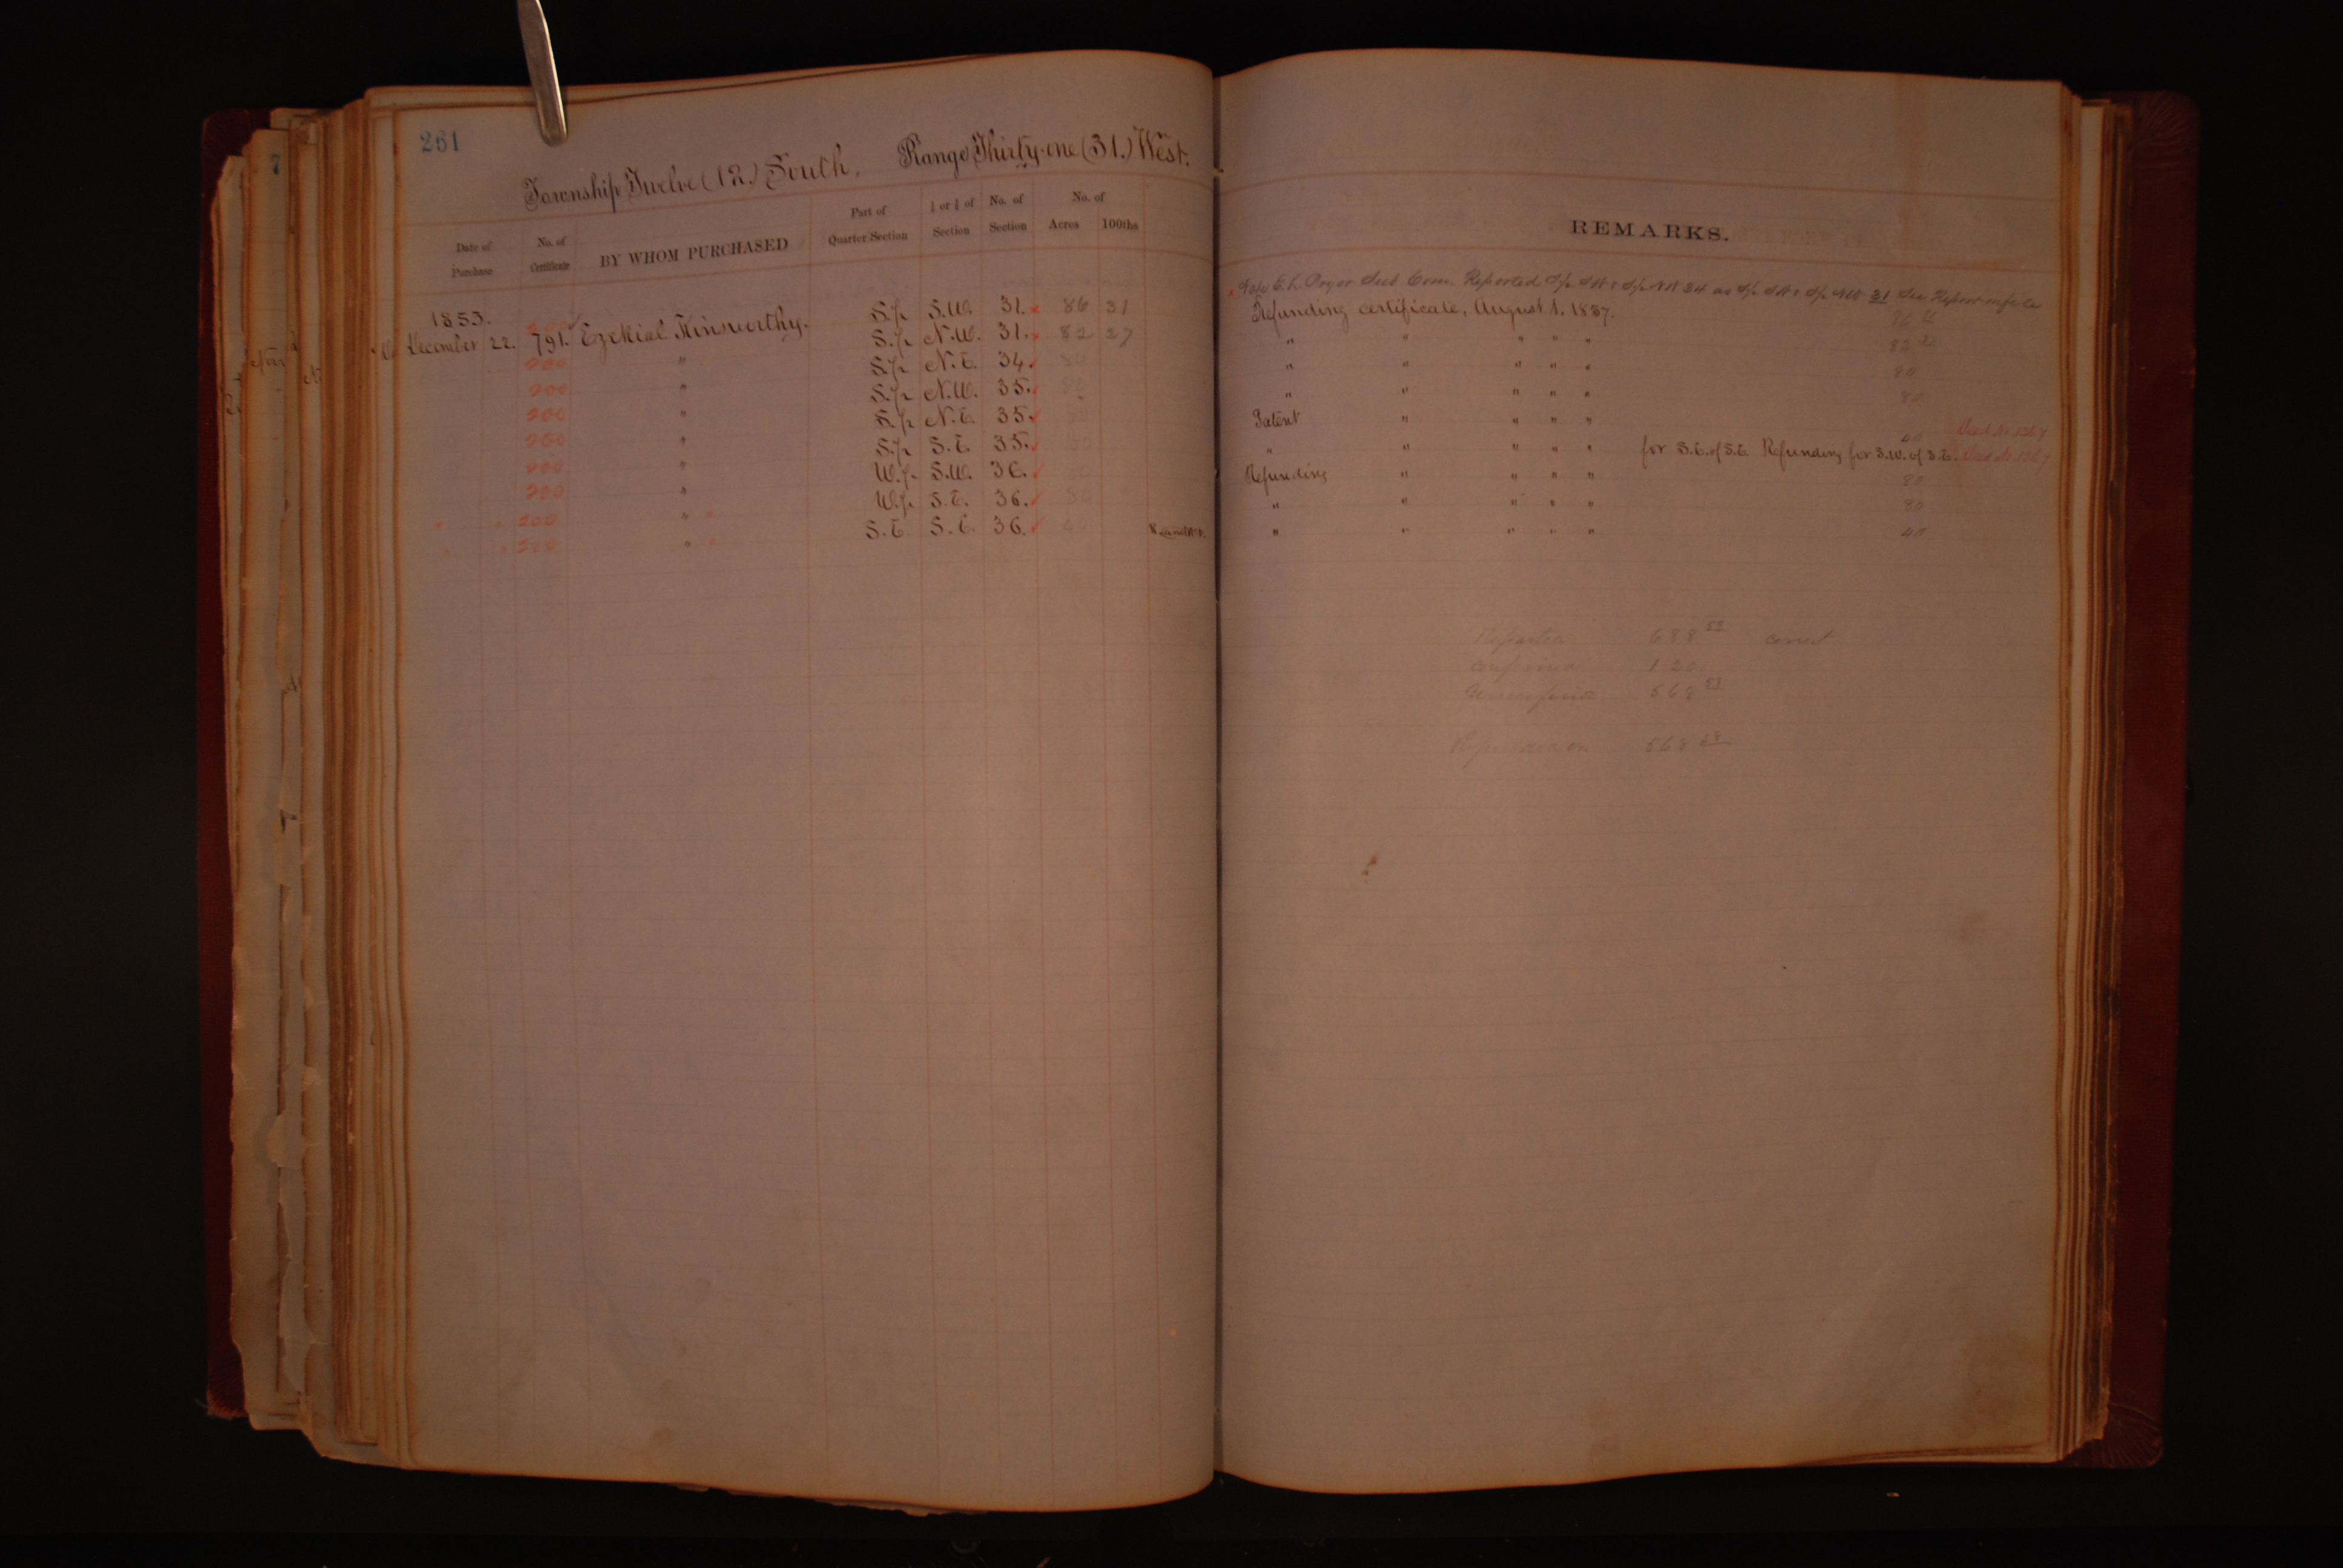 261
7
Township Twelve (12.) South, Range Thirty-one (31.) West.
Date of Purchase
No. of Certificate
BY WHOM PURCHASED
Part of Quarter Section
½ or ¼ of Section
No. of Section
No. of
Acres 100ths
REMARKS.
Reported S/2 S.W. & S/2 N.W. 34 as S/2 S.W. & S/2 N.W. 31 See Report on file
1853.
December 22. 791. Ezekial Kinsworthy. S.½ S.W. 31. 86 31 Refunding certificate, August 1. 1887.
200 S.½ N.W. 31. 82 27 " " " " " 82
200 " S.½ N.E. 34. 80 " " " " " 80
200 " S.½ N.W. 35. 80 " " " " " 80
200 " S.½ N.E. 35. 80 Patent " " " "
200 " S.½ S.E. 35. 80 " " " " " for S.E. of S.E. Refunding for S.W. of S.E. 40
200 " W.½ S.W. 36. 80 Refunding " " " " 80
200 " W.½ S.E. 36. 80 " " " " " 80
200 " S.E. S.E. 36. 40 " " " " " 40
200 "
688 58 correct
Confirmed 120
Unconfirmed 568 58
568 58